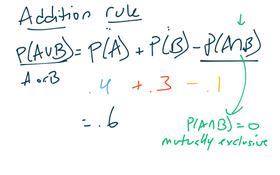 Addition rule
P(A∪B) = P(A) + P(B) − P(A∩B)
A or B
.4 + .3 − .1
= .6
P(A∩B) = 0
mutually exclusive